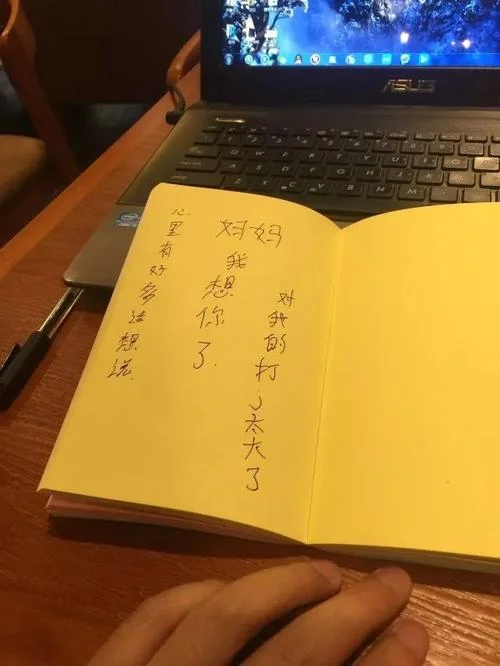 妈妈
我想你了.
心里有好多话想说.
对我的打太大了
ASUS